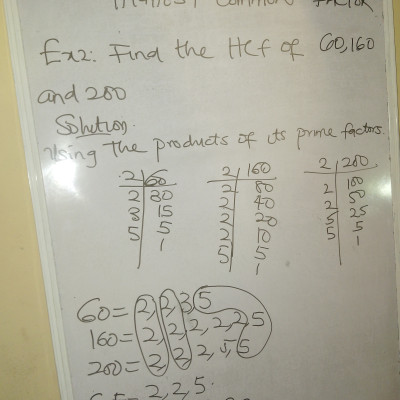 Common FACTOR
Ex2: Find the Hcf of 60, 160
and 200
Solution.
Using the products of its prime factors.
2 60 2 160 2 200
2 30 2 80 2 100
3 15 2 40 2 50
5 5 2 20 5 25
1 2 10 5 5
5 5 1
1
60 = 2, 2, 3, 5
160 = 2, 2, 2, 2, 2, 5
200 = 2, 2, 2, 5, 5
2, 2, 5.